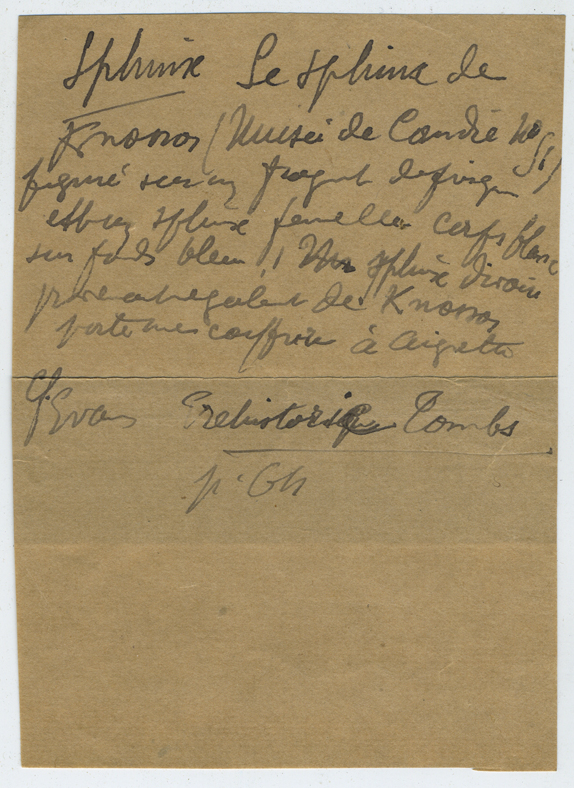 Sphinx Le sphinx de
Knossos (Musée de Candie No 51)
figuré sur un fragment de fresque
est un sphinx femelle corps blanc
sur fonds bleu. Un sphinx d'ivoire
provenant également de Knossos
porte une coiffure à aigrette
Cf. Evans Prehistoric Tombs
p.